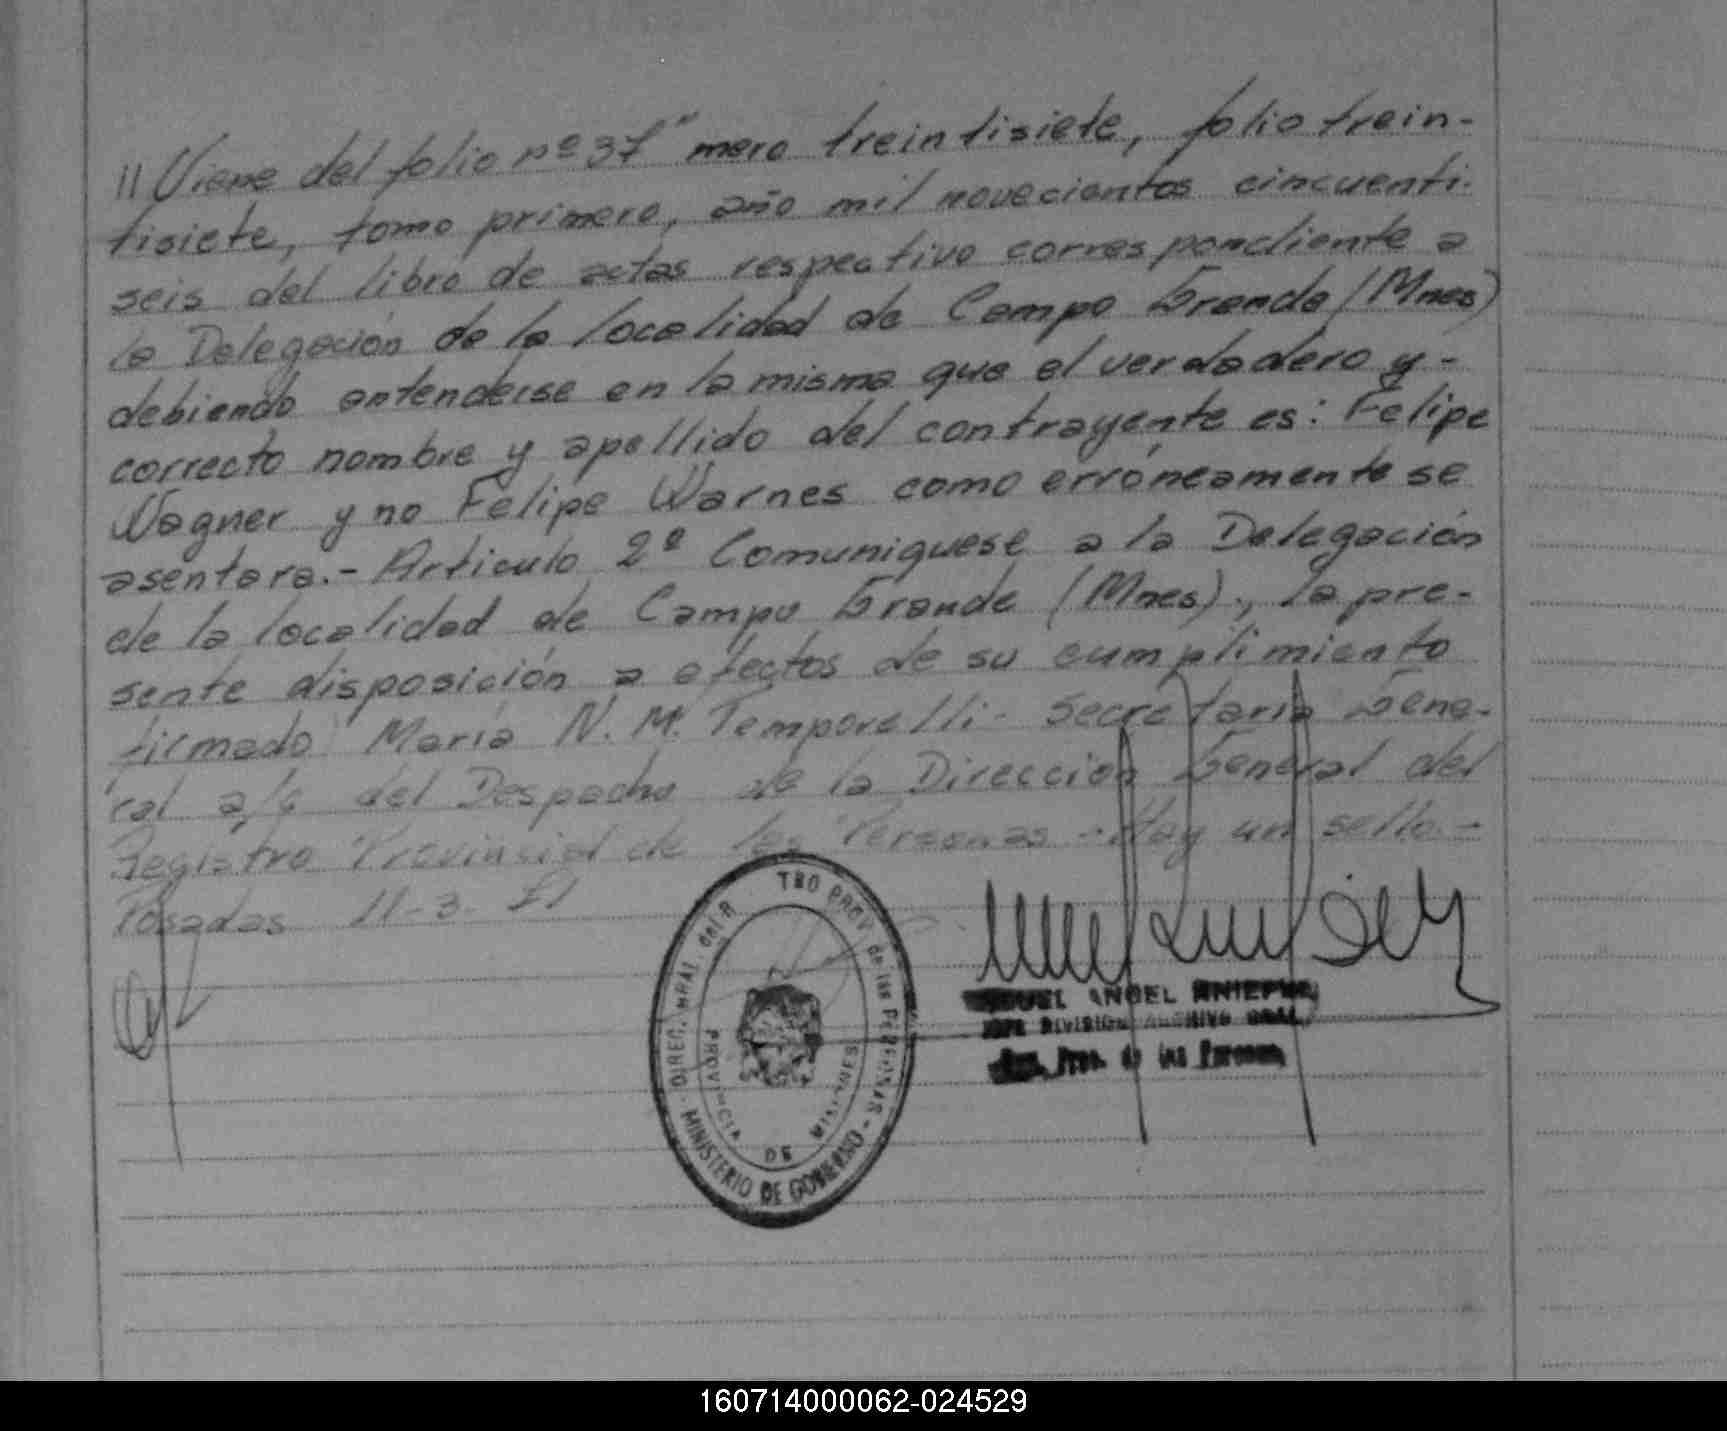 // Viene del folio nº 37" mero treintisiete, folio trein-
tisiete, tomo primero, año mil novecientos cincuenti-
seis del libro de actas respectivo correspondiente a
la Delegación de la localidad de Campo Grande (Mnes)
debiendo entenderse en la misma que el verdadero y-
correcto nombre y apellido del contrayente es: Felipe
Wagner y no Felipe Warnes como erróneamente se
asentara.- Articulo 2º Comuniquese a la Delegación
de la localidad de Campo Grande (Mnes)., la pre-
sente disposición a efectos de su cumplimiento
firmado Maria N. M. Temporelli- Secretaria Gene-
ral a/c del Despacho de la Dirección General del
Registro Provincial de las Personas -Hay un sello.-
Posadas 11-3-
DIREC. GRAL. del R TRO PROV. de las PERSONAS
MINISTERIO DE GOBIERNO
PROVINCIA DE MISIONES
MIGUEL ANGEL
JEFE DIVISION ARCHIVO GRAL.
Reg. Prov. de las Personas
160714000062-024529